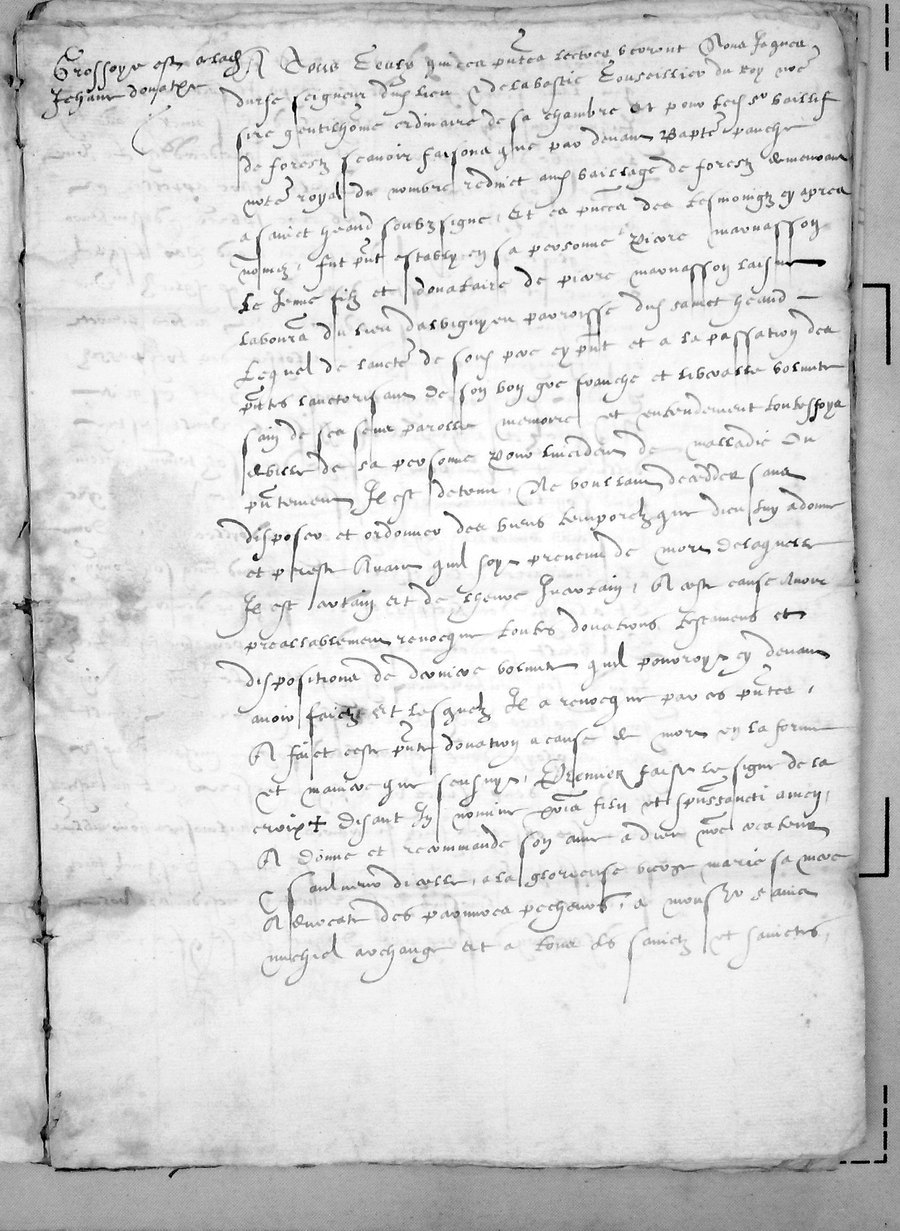 Grossoye est a lad
Jehanne donat
A Tous Ceulx qui ces pntes lectres verront Nous Jaques
durfe seigneur dud lieu & de la bastie Conseillier du Roy nre
sire gentilhome ordinaire de sa chambre Et pour led sr baillif
de forestz scavoir faisons que par devant Bapte panche
notre royal du nombre reduict aud bailliage de forestz demeurant
a sainct heand soubzsigne, Et es pnces des tesmoingz cy apres
nomez, fut pnt estably en sa personne Pierre marnasson
le Jeune filz et donataire de pierre marnasson laisne
laboura du lieu dalbiguyeu parroisse dud sainct heand
Lequel de laucte de sond pere cy pnt et a la passation des
pntes lauctorisant de son bon gre franche et liberalle volunte
sain de ses sens parolle memoire et entendement toutesfoys
debille de sa personne Pour lincident de malladie Ou
pntement Il est detenu, Ne voullant decedder sans
disposer et ordonner des biens temporelz que dieu luy a donne
et preste Avant quil soyt prevenu de mort de laquelle
Il est certain Et de lheure Incertain, A ceste cause Avoir
preallablement revocque toutes donations testamens et
dispositions de derniere volunte quil pourroyt cy devant
avoir faictz Et lesquelz Il a revocque par ces pntes,
A faict ceste pnte donation a cause de mort en la forme
et maniere que sensuyt, Premier faict le signe de la
croix + disant In nomine pris filii et spussancti amen,
A donne et recommande son ame a dieu nre createur
& saulveur dicelle, a la glorieuse vierge marie sa mere
Advocate des pauvres pecheurs, a monsr sainct
michiel archange Et a tous les sainctz et sainctes,